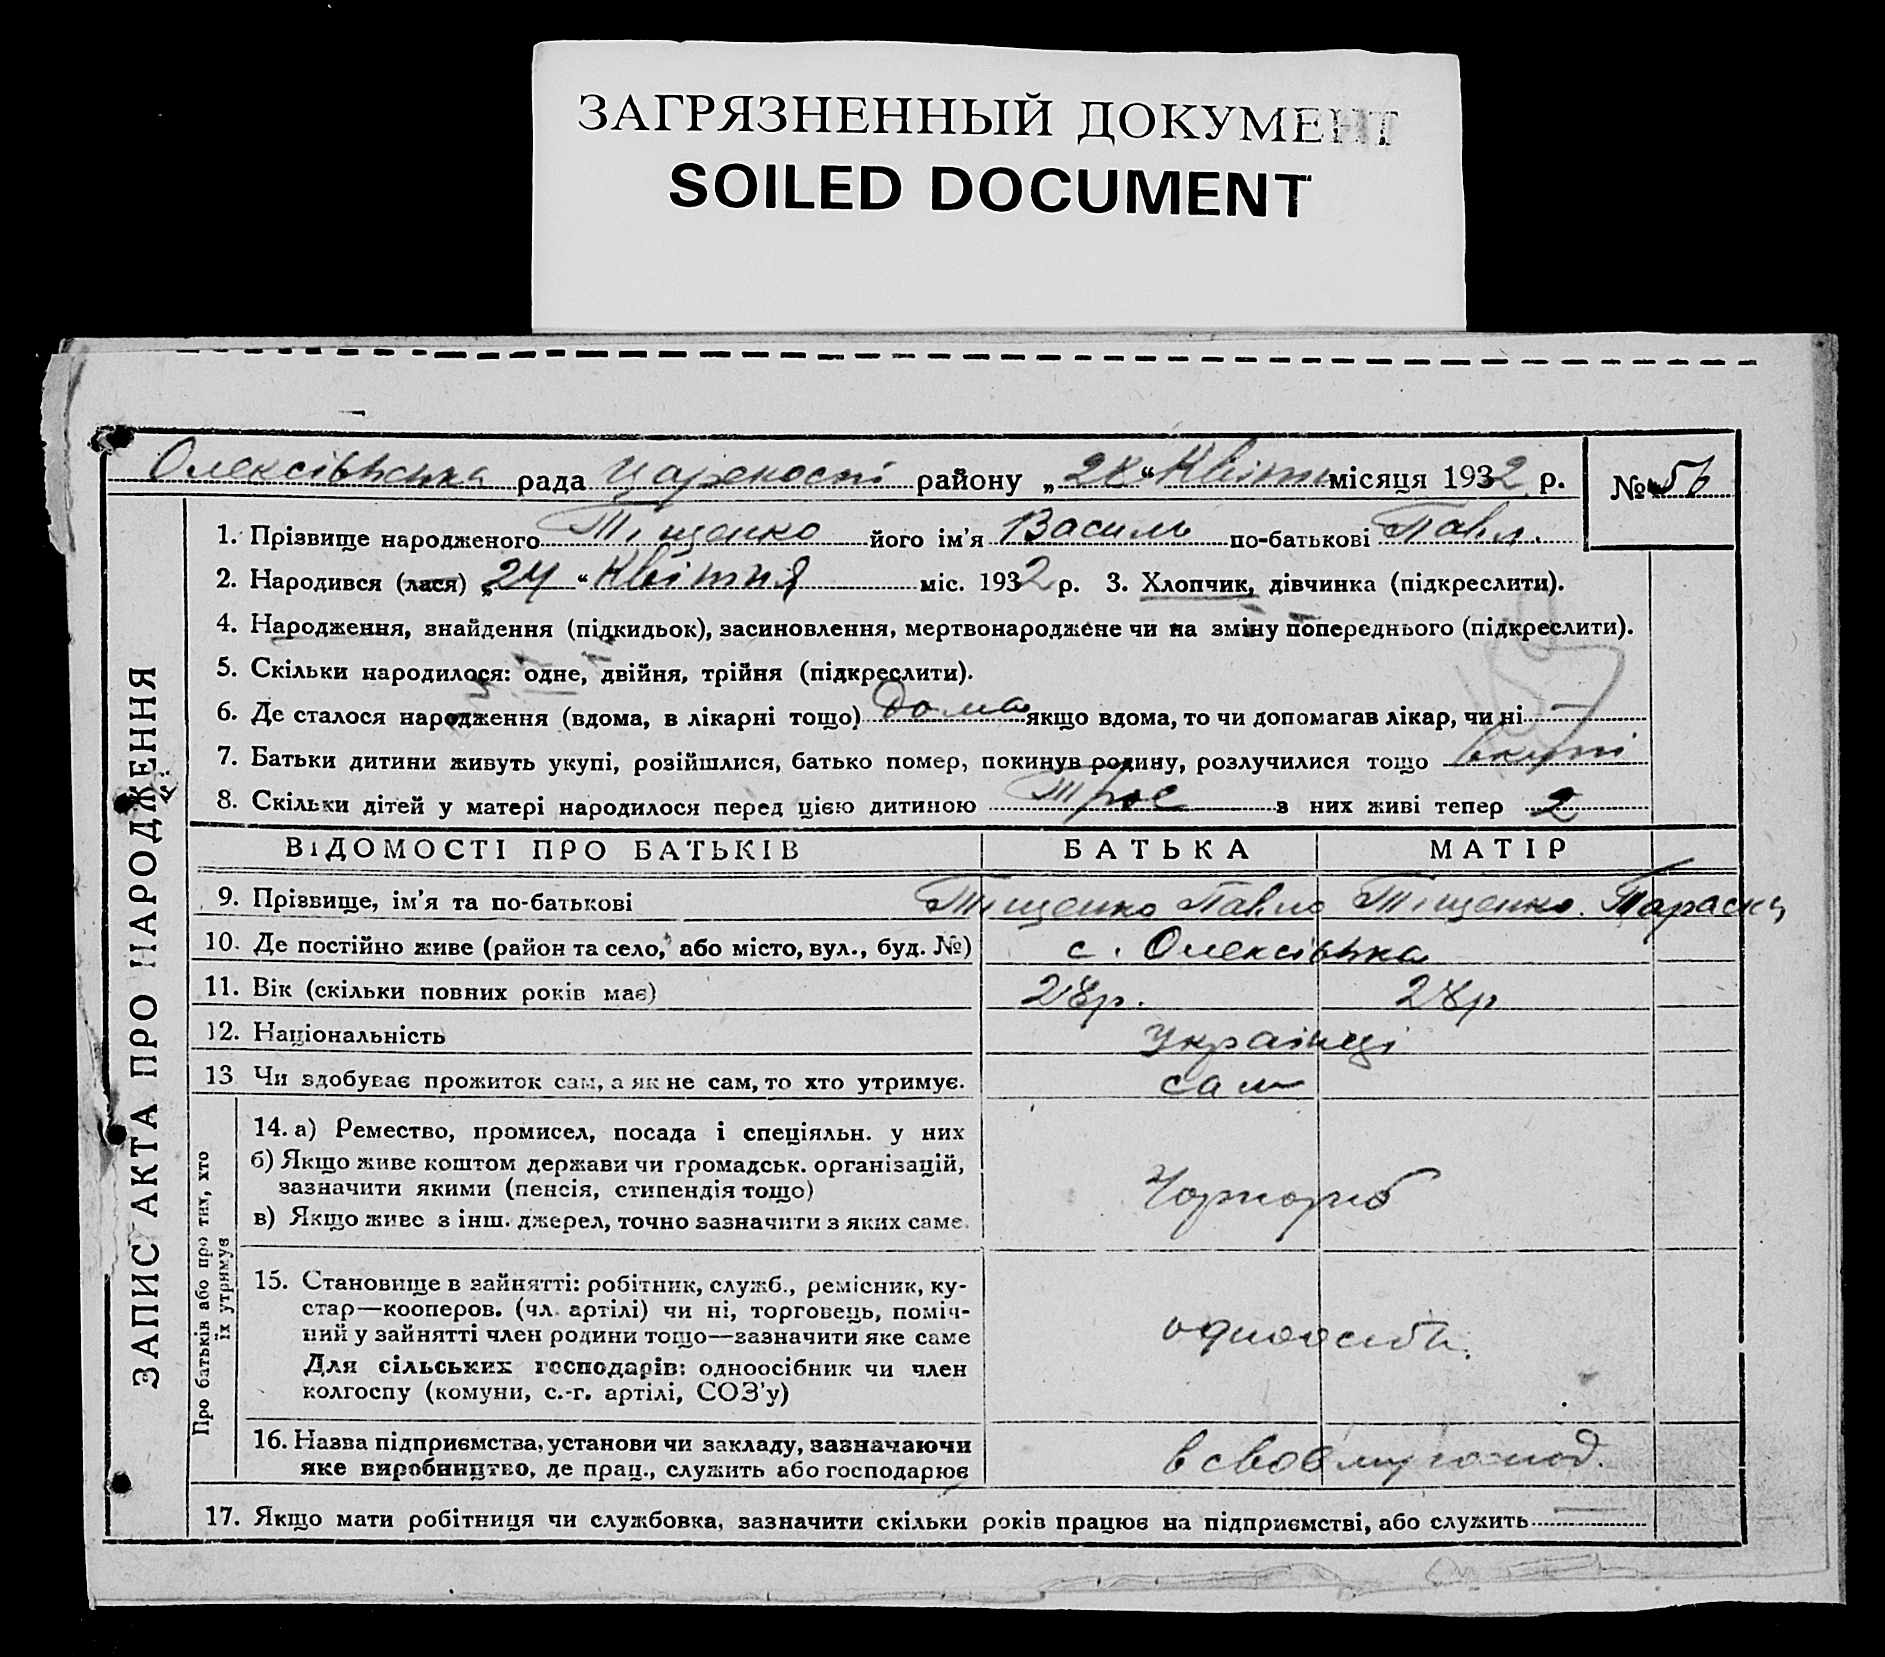 ЗАГРЯЗНЕННЫЙ ДОКУМЕНТ
SOILED DOCUMENT
Олексівська рада района „28“ Квітн місяця 1932 р. № 56
1. Прізвище народженого Тіщенко його ім'я Василь по-батькові Павл.
2. Народився (лася) „24“ Квітня міс. 1932 р. 3. Хлопчик, дівчинка (підкреслити).
4. Народження, знайдення (підкидьок), засиновлення, мертвонароджене чи на зміну попереднього (підкреслити).
5. Скільки народилося: одне, двійня, трійня (підкреслити).
6. Де сталося народження (вдома, в лікарні тощо) дома якщо вдома, то чи допомагав лікар, чи ні —
7. Батьки дитини живуть укупі, розійшлися, батько помер, покинув родину, розлучилися тощо вкупі
8. Скільки дітей у матері народилося перед цією дитиною Троє з них живі тепер 2
ЗАПИС АКТА ПРО НАРОДЖЕННЯ
ВІДОМОСТІ ПРО БАТЬКІВ БАТЬКА МАТІР
9. Прізвище, ім'я та по-батькові Тіщенко Павло Тіщенко Параска
10. Де постійно живе (район та село, або місто, вул., буд. №) с. Олексівка
11. Вік (скільки повних років має) 28р. 28р
12. Національність Українці
13 Чи здобуває прожиток сам, а як не сам, то хто утримує. сам
Про батьків або про тих, хто
їх утримує
14. а) Ремество, промисел, посада і спеціяльн. у них
б) Якщо живе коштом держави чи громадськ. організацій,
зазначити якими (пенсія, стипендія тощо) Чорнороб
в) Якщо живе з інш. джерел, точно зазначити з яких саме.
15. Становище в зайнятті: робітник, служб., ремісник, ку-
стар—кооперов. (чл. артілі) чи ні, торговець, поміч-
ний у зайнятті член родини тощо—зазначити яке саме одноосібн.
Для сільських господарів: одноосібник чи член
колгоспу (комуни, с.-г. артілі, СОЗ'у)
16. Назва підприємства, установи чи закладу, зазначаючи
яке виробництво, де прац., служить або господарює в своєму господ.
17. Якщо мати робітниця чи службовка, зазначити скільки років працює на підприємстві, або служить —